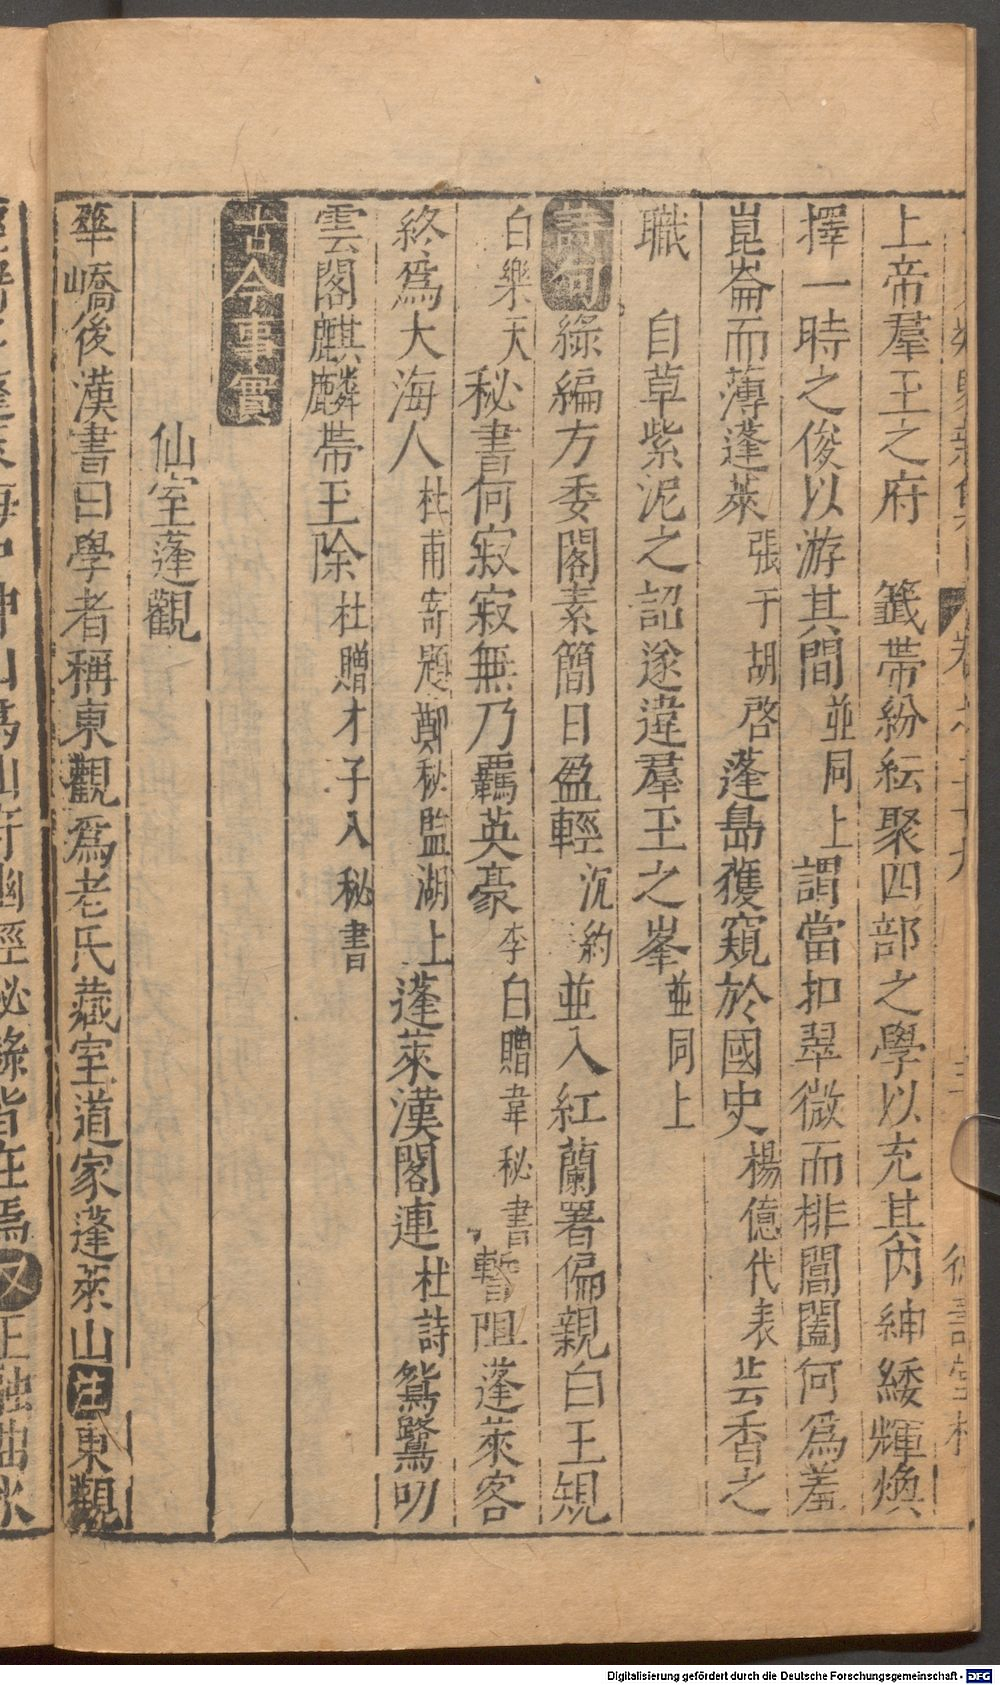 上帝羣玉之府　籤帶紛紜聚四部之學以充其內紳緌輝煥
擇一時之俊以游其間並同上謂當扣翠微而排閶闔何爲羞
崑崙而薄蓬萊張于胡啓蓬島獲窺於國史楊億代表芸香之
職　自草紫泥之詔遂違羣玉之峯並同上
詩句綠編方委閣素簡日盈輕沉約並入紅蘭署偏親白玉規
白樂天　秘書何寂寂無乃羈英豪李白贈韋秘書暫阻蓬萊客
終爲大海人杜甫寄題鄭秘監湖上蓬萊漢閣連杜詩鴛鷺叨
雲閣麒麟帶玉除杜贈才子入秘書
古今事實
仙室蓬觀
華嶠後漢書曰學者稱東觀爲老氏藏室道家蓬萊山注東觀
海中神山爲仙府幽經秘錄皆在焉又王融曲水
Digitalisierung gefördert durch die Deutsche Forschungsgemeinschaft - DFG